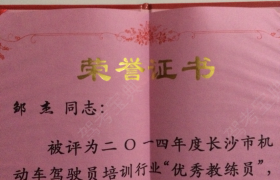 荣誉证书
邹杰同志：
被评为二〇一四年度长沙市机
动车驾驶员培训行业“优秀教练员”，